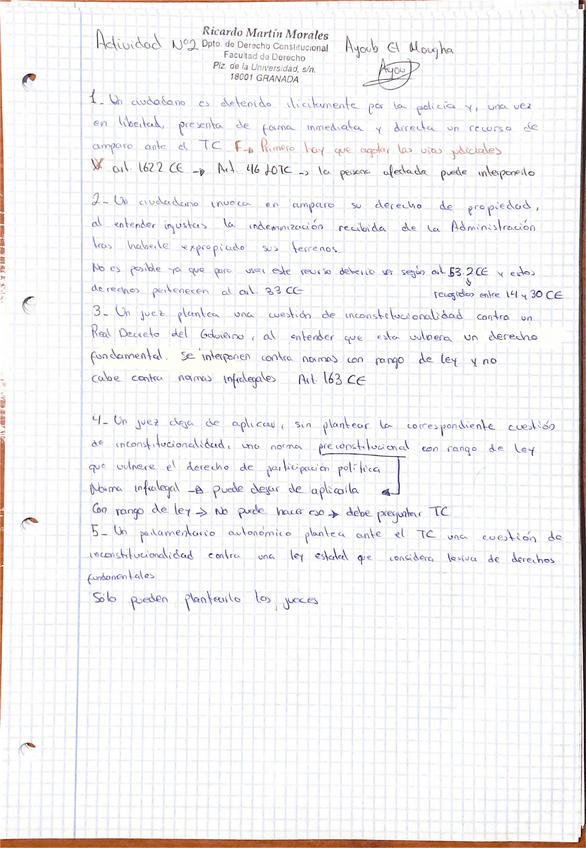 Actividad Nº2
Ricardo Martín Morales
Dpto. de Derecho Constitucional
Facultad de Derecho
Plz. de la Universidad, s/n.
18001 GRANADA
Ayoub El Mougha
Ayoub
1_ Un ciudadano es detenido ilícitamente por la policía y, una vez
en libertad, presenta de forma inmediata y directa un recurso de
amparo ante el TC F→ Primero hay que agotar las vías judiciales
V art 162.2 CE → Art. 46 LOTC → la persona afectada puede interponerlo
2_ Un ciudadano invoca en amparo su derecho de propiedad,
al entender injustas la indemnización recibida de la Administración
tras haberle expropiado sus terrenos.
No es posible ya que para usar este recurso debería ser según art. 53.2 CE y estos
derechos pertenecen al art. 33 CE
recogidos entre 14 y 30 CE
3_ Un juez plantea una cuestión de inconstitucionalidad contra un
Real Decreto del Gobierno, al entender que esta vulnera un derecho
fundamental. Se interponen contra normas con rango de ley y no
cabe contra normas infralegales Art. 163 CE
4_ Un juez deja de aplicar, sin plantear la correspondiente cuestión
de inconstitucionalidad, una norma preconstitucional con rango de ley
que vulnere el derecho de participación política
Norma infralegal → puede dejar de aplicarla
Con rango de ley → No puede hacer eso → debe preguntar TC
5_ Un parlamentario autonómico plantea ante el TC una cuestión de
inconstitucionalidad contra una ley estatal que considera lesiva de derechos
fundamentales
Solo pueden plantearlo los jueces